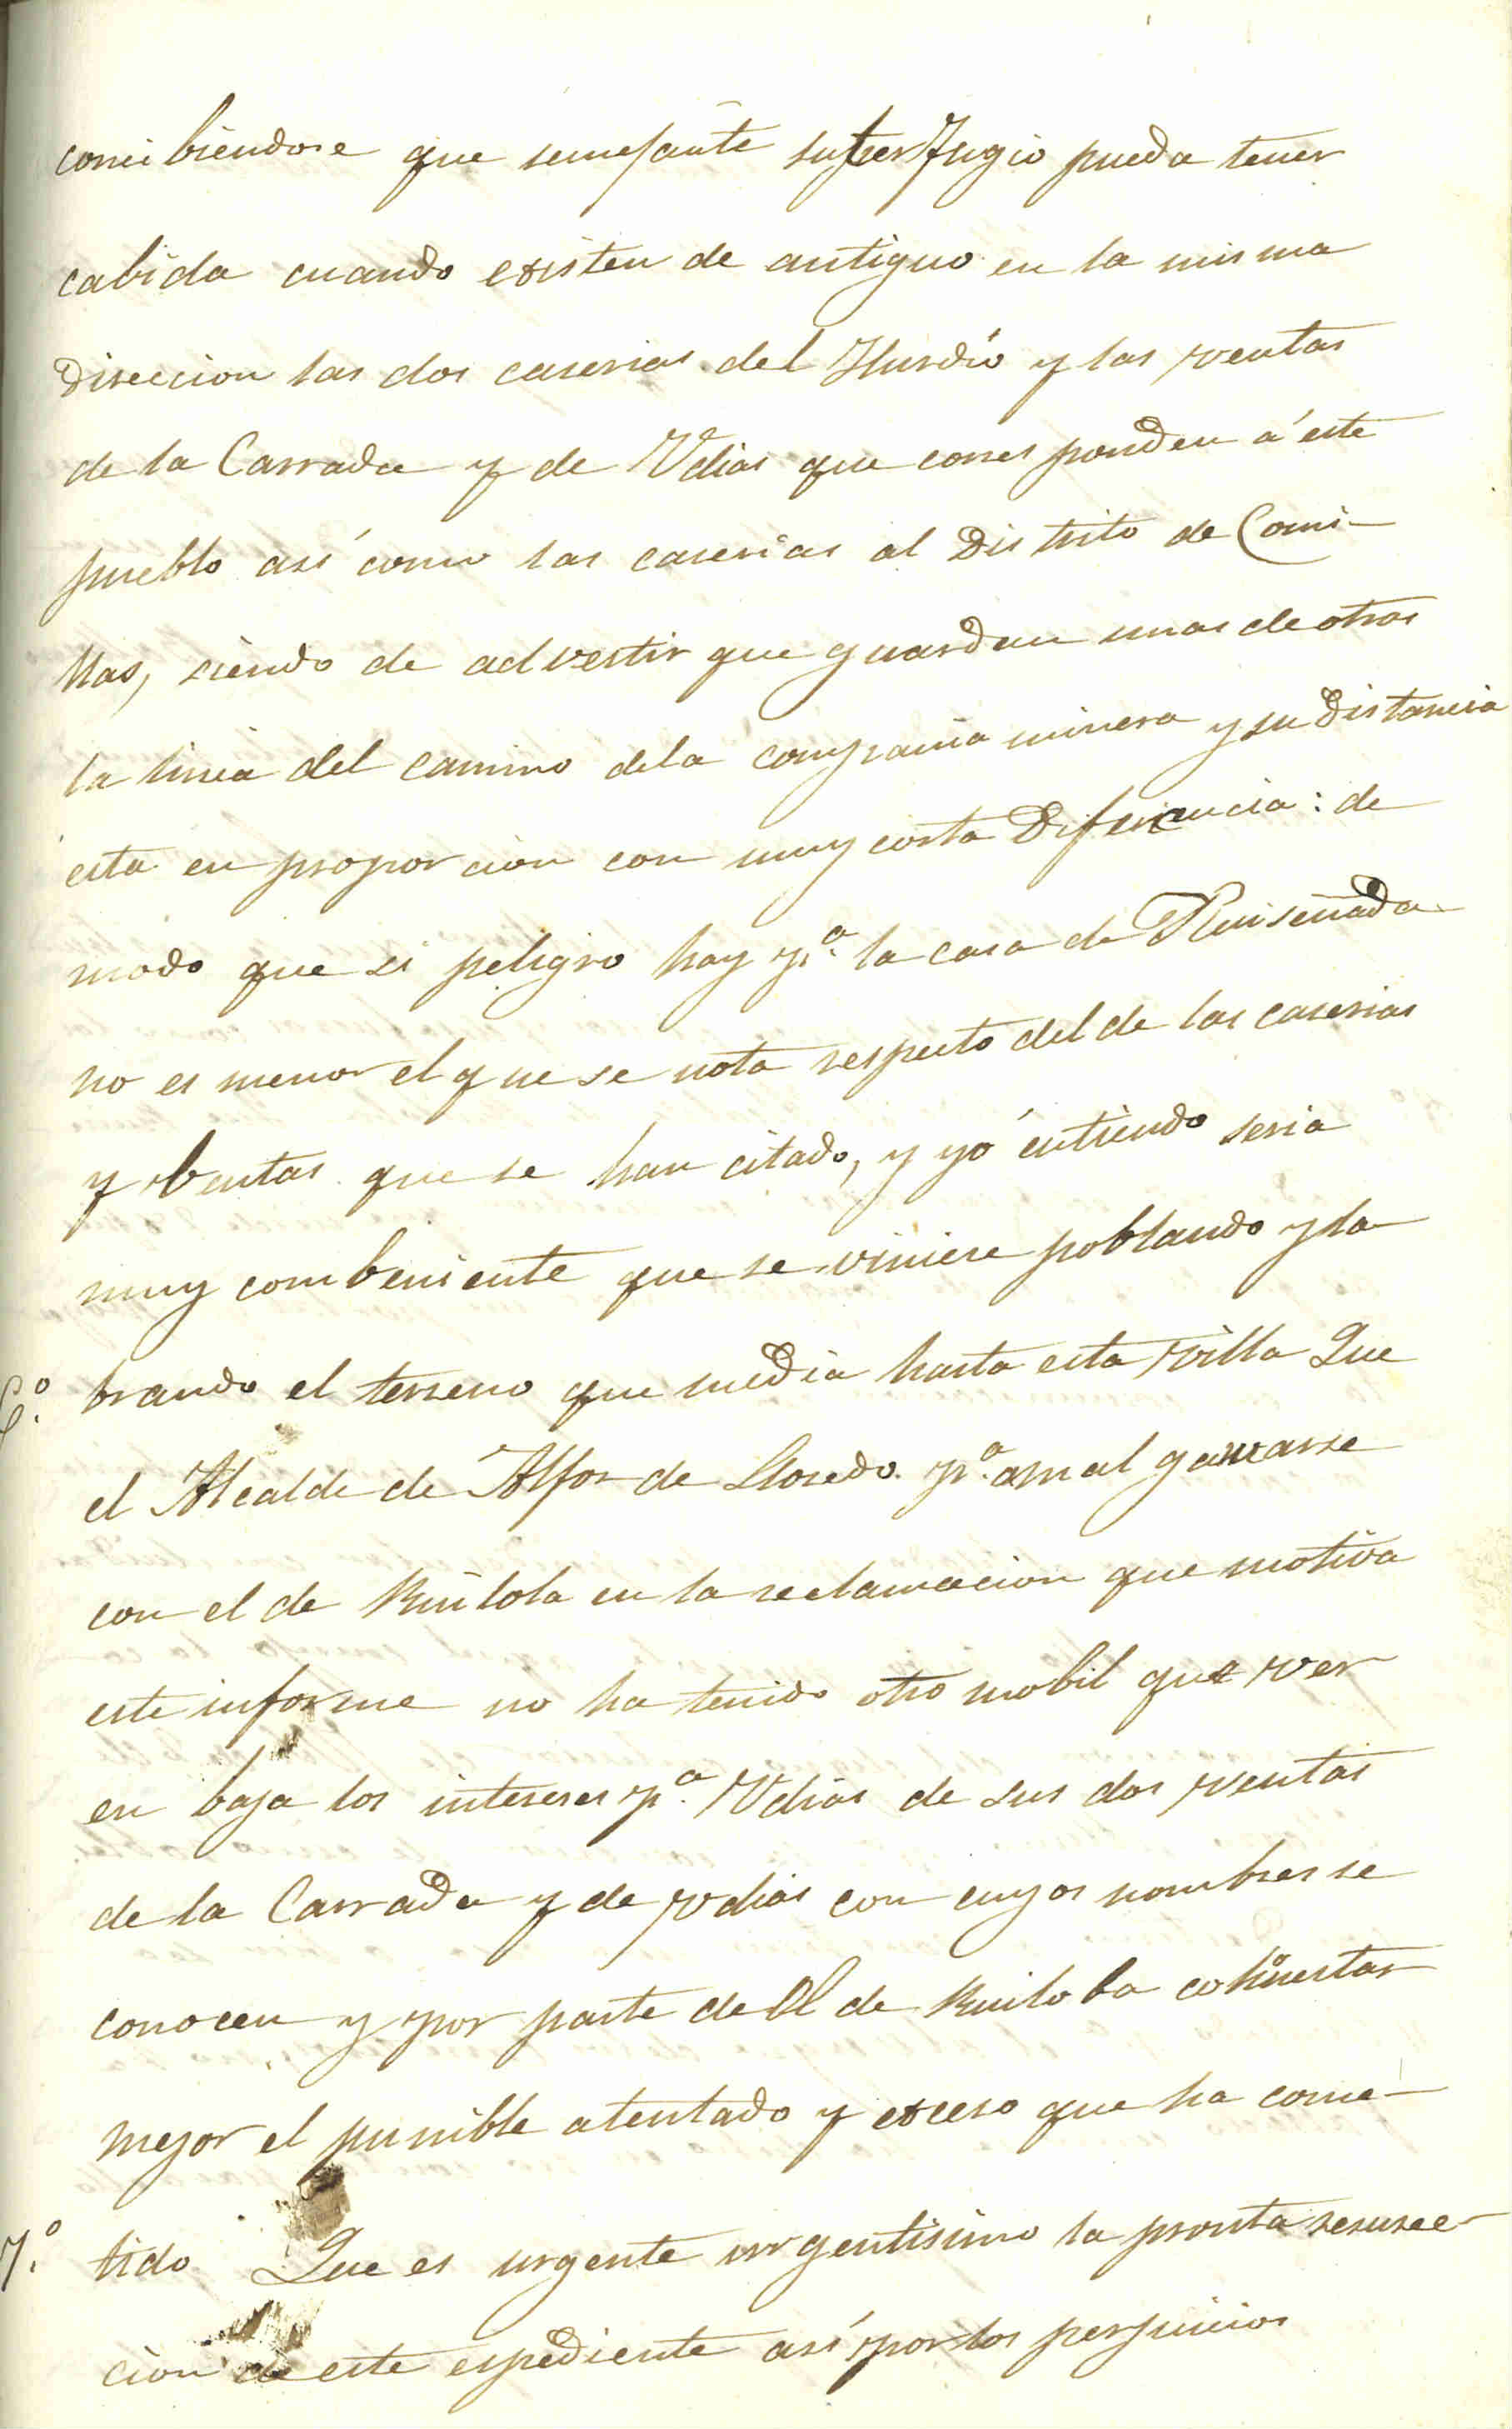 concibiendose que semejante subterfugio pueda tener
cabida cuando existen de antiguo en la misma
direccion las dos caserias del Hurdio y las ventas
de la Carrada y de Udias que corresponden á este
pueblo así como las caserias al Distrito de Comi-
llas, siendo de advertir que guardan unas de otras
la linea del camino dela compañia minera y su distancia
esta en proporcion con muy corta diferencia: de
modo que si peligro hay pª. la casa de Ruiseñada
no es menor el que se nota respecto del de las caserias
y bentas que se han citado, y yo entiendo seria
muy combeniente que se viniese poblando y la-
6º. brando el terreno que media hasta esta villa Que
el Alcalde de Alfos de Lloredo pª. amalgamarse
con el de Ruilola en la reclamacion que motiva
este informe no ha tenido otro mobil que ver
en baja los intereses pª. Udias de sus dos ventas
de la Carrada y de Udias con cuyos nombres se
conocen y por parte del de Ruiloba cohonestar
mejor el punible atentado y exceso que ha come-
7º. tido Que es urgente urgentisimo la pronta resusec-
cion de este espediente así por los perjuicios